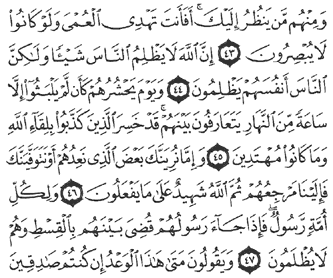 وَمِنْهُم مَّن يَنظُرُ إِلَيْكَ ۚ أَفَأَنتَ تَهْدِى ٱلْعُمْىَ وَلَوْ كَانُوا۟
لَا يُبْصِرُونَ ٤٣ إِنَّ ٱللَّهَ لَا يَظْلِمُ ٱلنَّاسَ شَيْـًٔا وَلَـٰكِنَّ
ٱلنَّاسَ أَنفُسَهُمْ يَظْلِمُونَ ٤٤ وَيَوْمَ يَحْشُرُهُمْ كَأَن لَّمْ يَلْبَثُوٓا۟ إِلَّا
سَاعَةً مِّنَ ٱلنَّهَارِ يَتَعَارَفُونَ بَيْنَهُمْ ۚ قَدْ خَسِرَ ٱلَّذِينَ كَذَّبُوا۟ بِلِقَآءِ ٱللَّهِ
وَمَا كَانُوا۟ مُهْتَدِينَ ٤٥ وَإِمَّا نُرِيَنَّكَ بَعْضَ ٱلَّذِى نَعِدُهُمْ أَوْ نَتَوَفَّيَنَّكَ
فَإِلَيْنَا مَرْجِعُهُمْ ثُمَّ ٱللَّهُ شَهِيدٌ عَلَىٰ مَا يَفْعَلُونَ ٤٦ وَلِكُلِّ
أُمَّةٍ رَّسُولٌ ۖ فَإِذَا جَآءَ رَسُولُهُمْ قُضِىَ بَيْنَهُم بِٱلْقِسْطِ وَهُمْ
لَا يُظْلَمُونَ ٤٧ وَيَقُولُونَ مَتَىٰ هَـٰذَا ٱلْوَعْدُ إِن كُنتُمْ صَـٰدِقِينَ